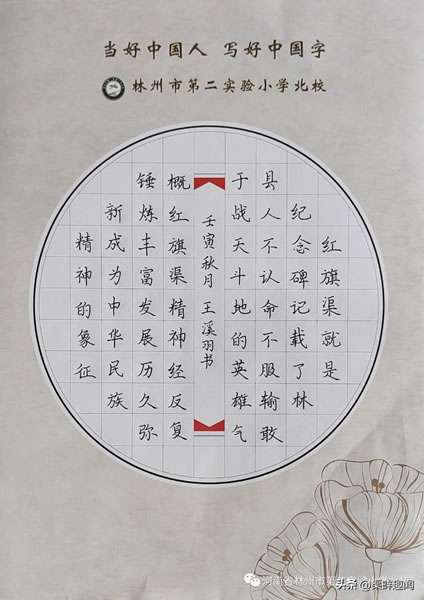 当好中国人 写好中国字
林州市第二实验小学北校
红旗渠就是
纪念碑记载了林
县人不认命不服输敢
于战天斗地的英雄气
壬寅秋月 王溪羽书
概红旗渠精神经反复
锤炼丰富发展历久弥
新成为中华民族
精神的象征
河南省林州市第
头条 @渠畔趣闻